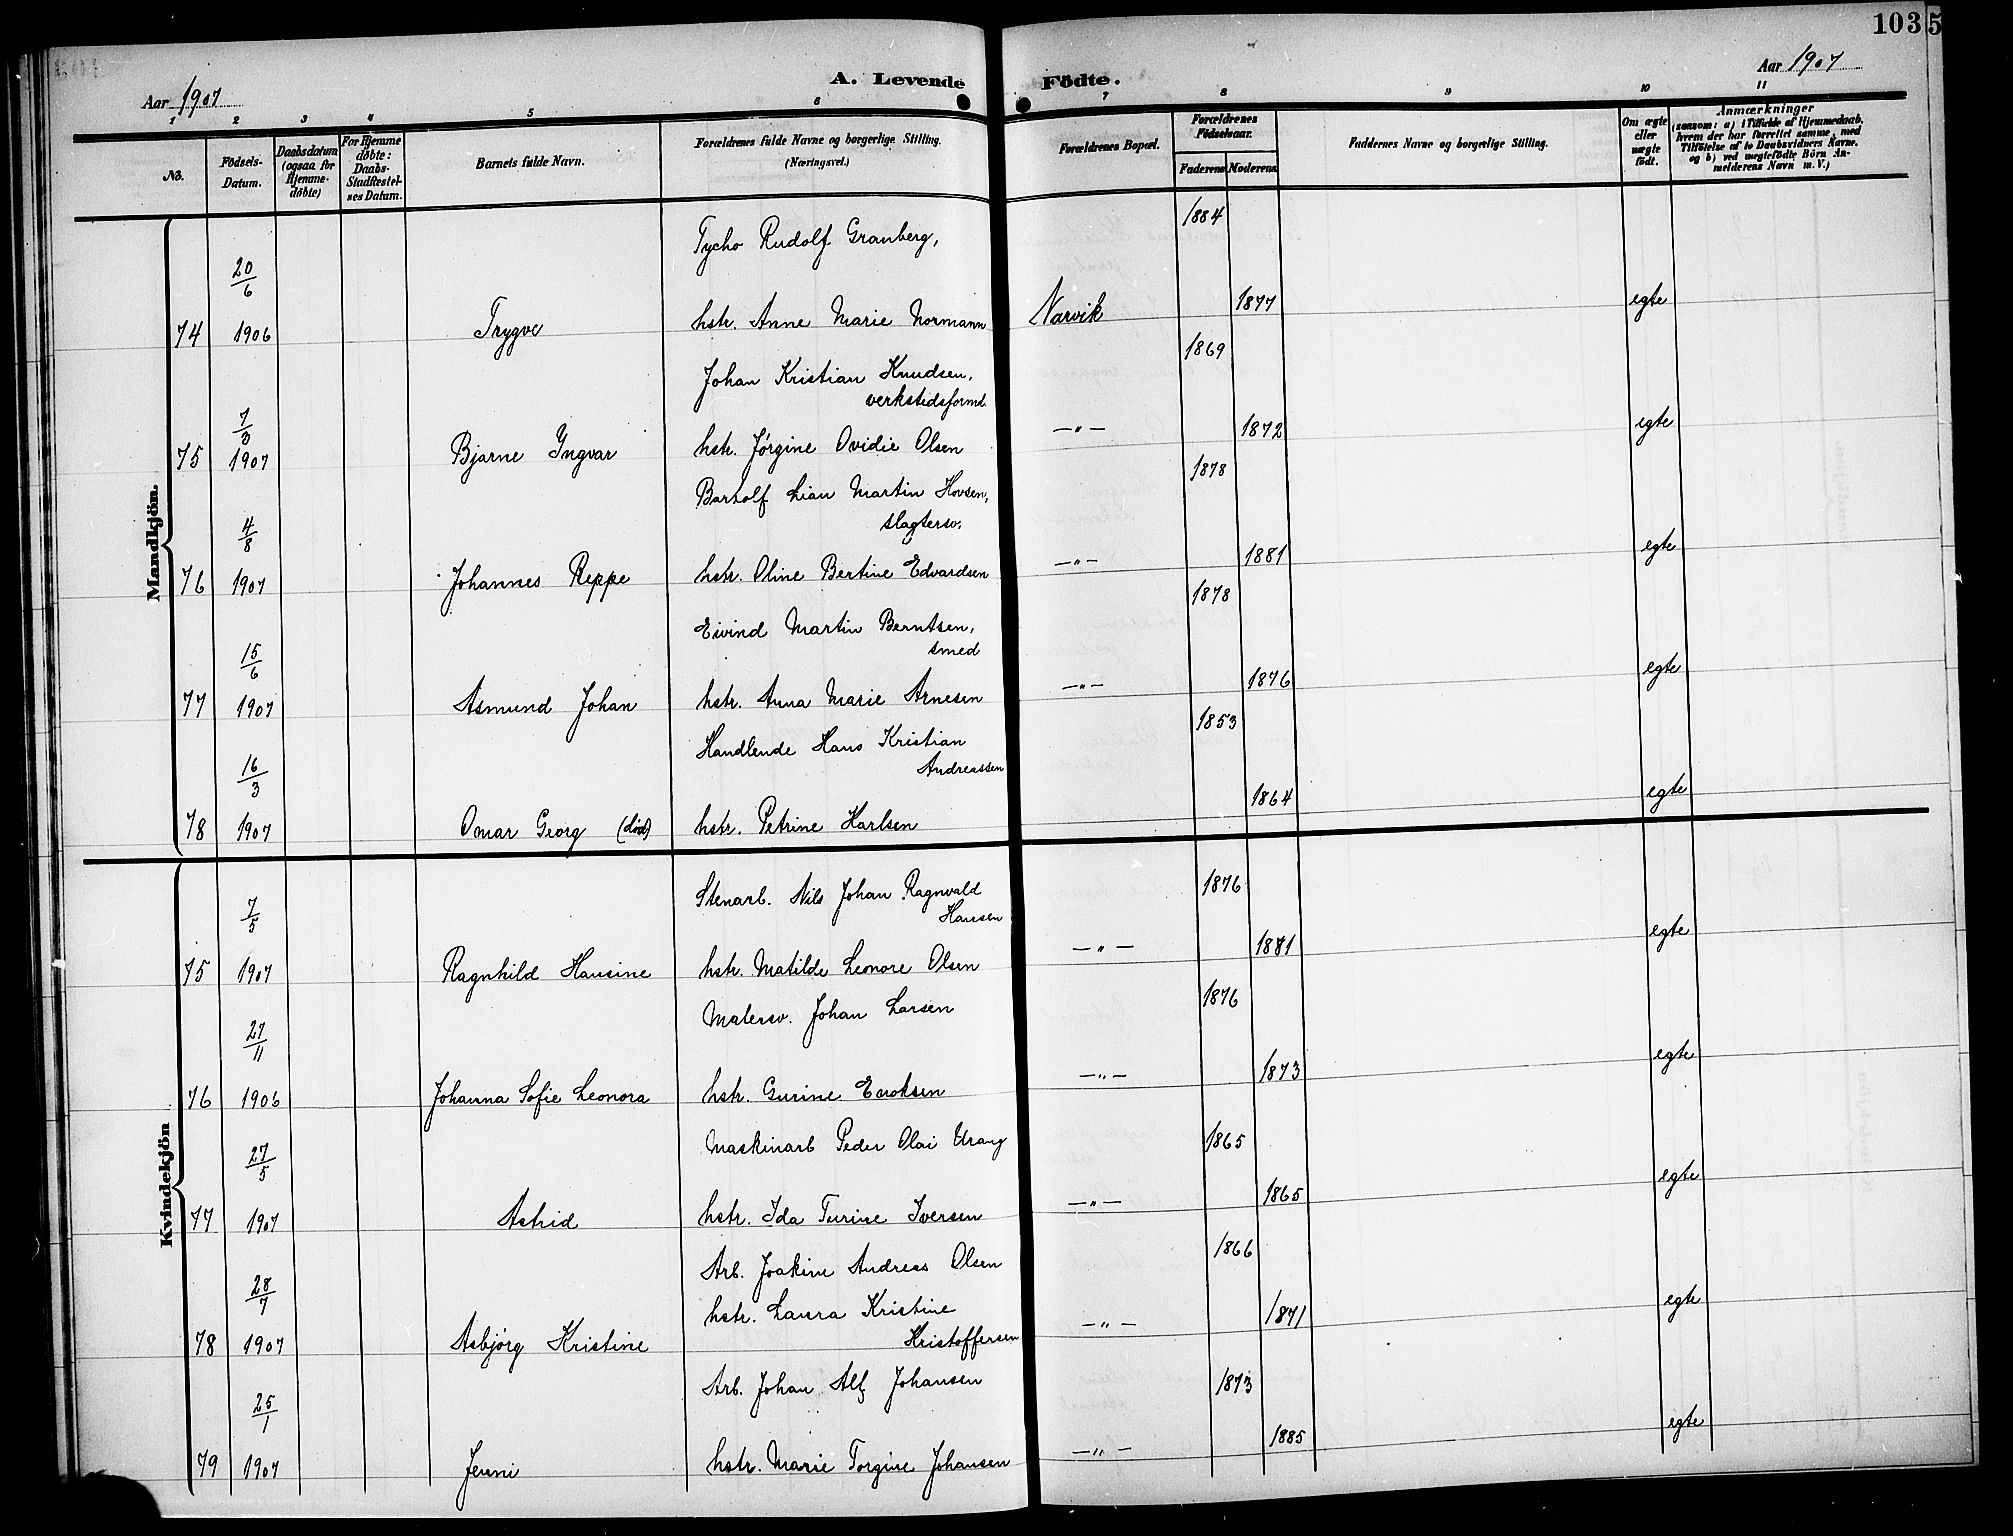 1035
A. Levende Födte.
Aar 1907
Aar 1907
1 2 3 4 5 6 7 8 9 10 11
No.
Födsels-Datum.
Daabsdatum (ogsaa for Hjemme-döbte)
For Hjemme döbte: Daabs-Stadfæstel-ses Datum.
Barnets fulde Navn.
Forældrenes fulde Navne og borgerlige Stilling.
(Næringsvei.)
Forældrenes Bopæl.
Forældrenes Födselsaar.
Faderens Moderens
Faddernes Navne og borgerlige Stilling.
Om ægte eller uægte födt.
Anmærkninger
(saasom: a) i Tilfælde af Hjemmedaab,
hvem der har forrettet samme, med
Tilföielse af to Daabsvidners Navne,
og b) ved uægtefödte Börn An-
melderens Navn m. V.)
Mandkjön.
Tycho Rudolf Granberg, 1884
20/6
74 1906 Trygve hstr. Anne Marie Normann Narvik 1877 egte
Johan Kristian Knudsen, 1869
verkstedsformd.
7/3
75 1907 Bjarne Yngvar hstr. Jørgine Ovidie Olsen —"— 1872 egte
Lian Martin Hovsen, 1878
slagtersv.
4/8
76 1907 Johannes Reppe hstr. Oline Bertine Edvardsen —"— 1881 egte
Eivind Martin Berntsen, 1878
smed
15/6
77 1907 Asmund Johan hstr. Anna Marie Arnesen —"— 1876 egte
Handlende Hans Kristian 1853
Andreassen
16/3
78 1907 Omar Georg (død) hstr. Petrine Karlsen 1864 egte
Kvindekjön
Stenarb. Nils Johan Ragnvald 1876
Hansen
7/5
75 1907 Ragnhild Hansine hstr. Matilde Leonore Olsen —"— 1881 egte
Malersv. Johan Larsen 1876
27/11
76 1906 Johanna Sofie Leonora hstr. Gurine Enoksen —"— 1873 egte
Maskinarb Peder Olai Urang 1865
27/5
77 1907 Astrid hstr. Ida Turine Iversen —"— 1865 egte
Arb. Joakim Andreas Olsen 1866
28/7
hstr. Laura Kristine
78 1907 Asbjørg Kristine Kristoffersen —"— 1871 egte
Arb. Johan Alf Johansen 1873
25/1
79 1907 Jenni hstr. Marie Torgine Johansen —"— 1885 egte